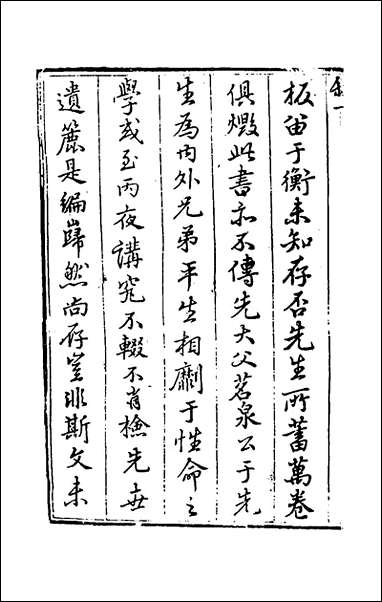 板留于衡未知存否先生所蓄萬卷
俱燬此書亦不傳先大父茗泉公于先
生為內外兄弟平生相劘于性命之
學或至丙夜講究不輟不肖檢先世
遺簏是編巋然尚存豈非斯文未